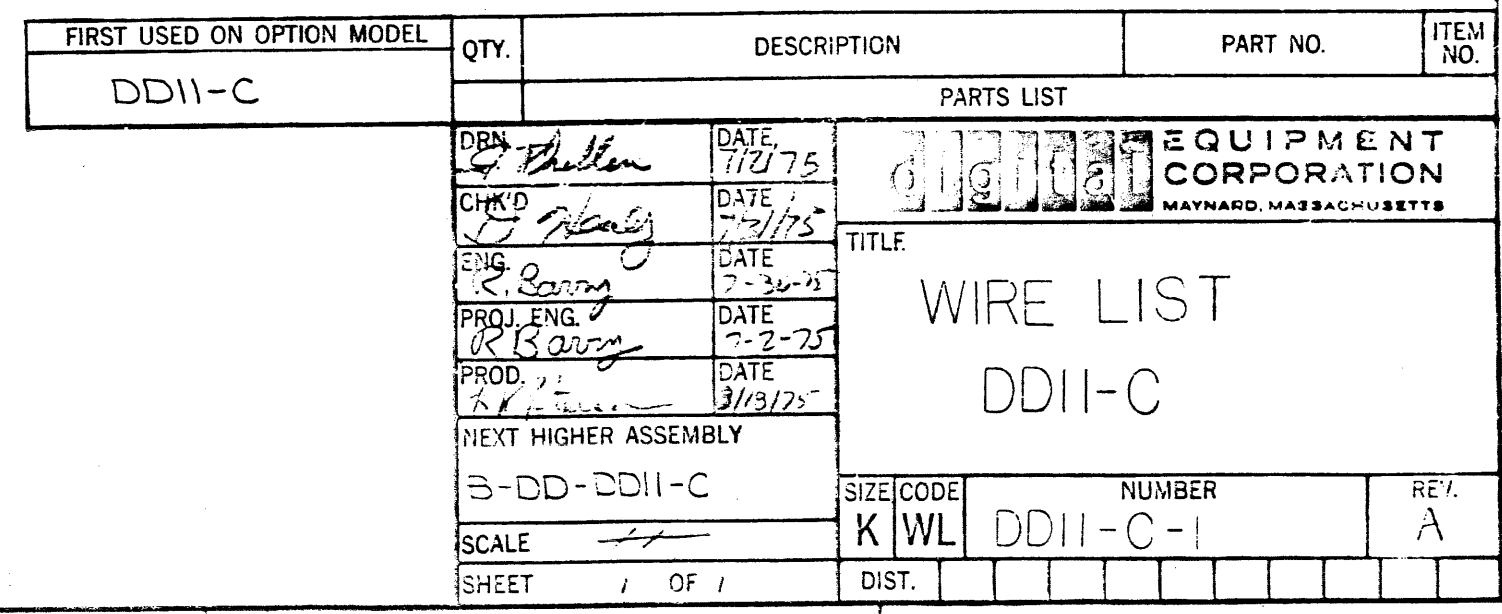 FIRST USED ON OPTION MODEL
DD11-C
QTY.
DESCRIPTION
PART NO.
ITEM NO.
PARTS LIST
DRN.
DATE
7/2/75
CHK'D
DATE
ENG.
R. Barry
DATE
PROJ. ENG.
R Barry
DATE
7-2-75
PROD.
DATE
NEXT HIGHER ASSEMBLY
B-DD-DD11-C
SCALE
SHEET 1 OF 1
digital
EQUIPMENT
CORPORATION
MAYNARD, MASSACHUSETTS
TITLE
WIRE LIST
DD11-C
SIZE
K
CODE
WL
NUMBER
DD11-C-1
REV.
A
DIST.